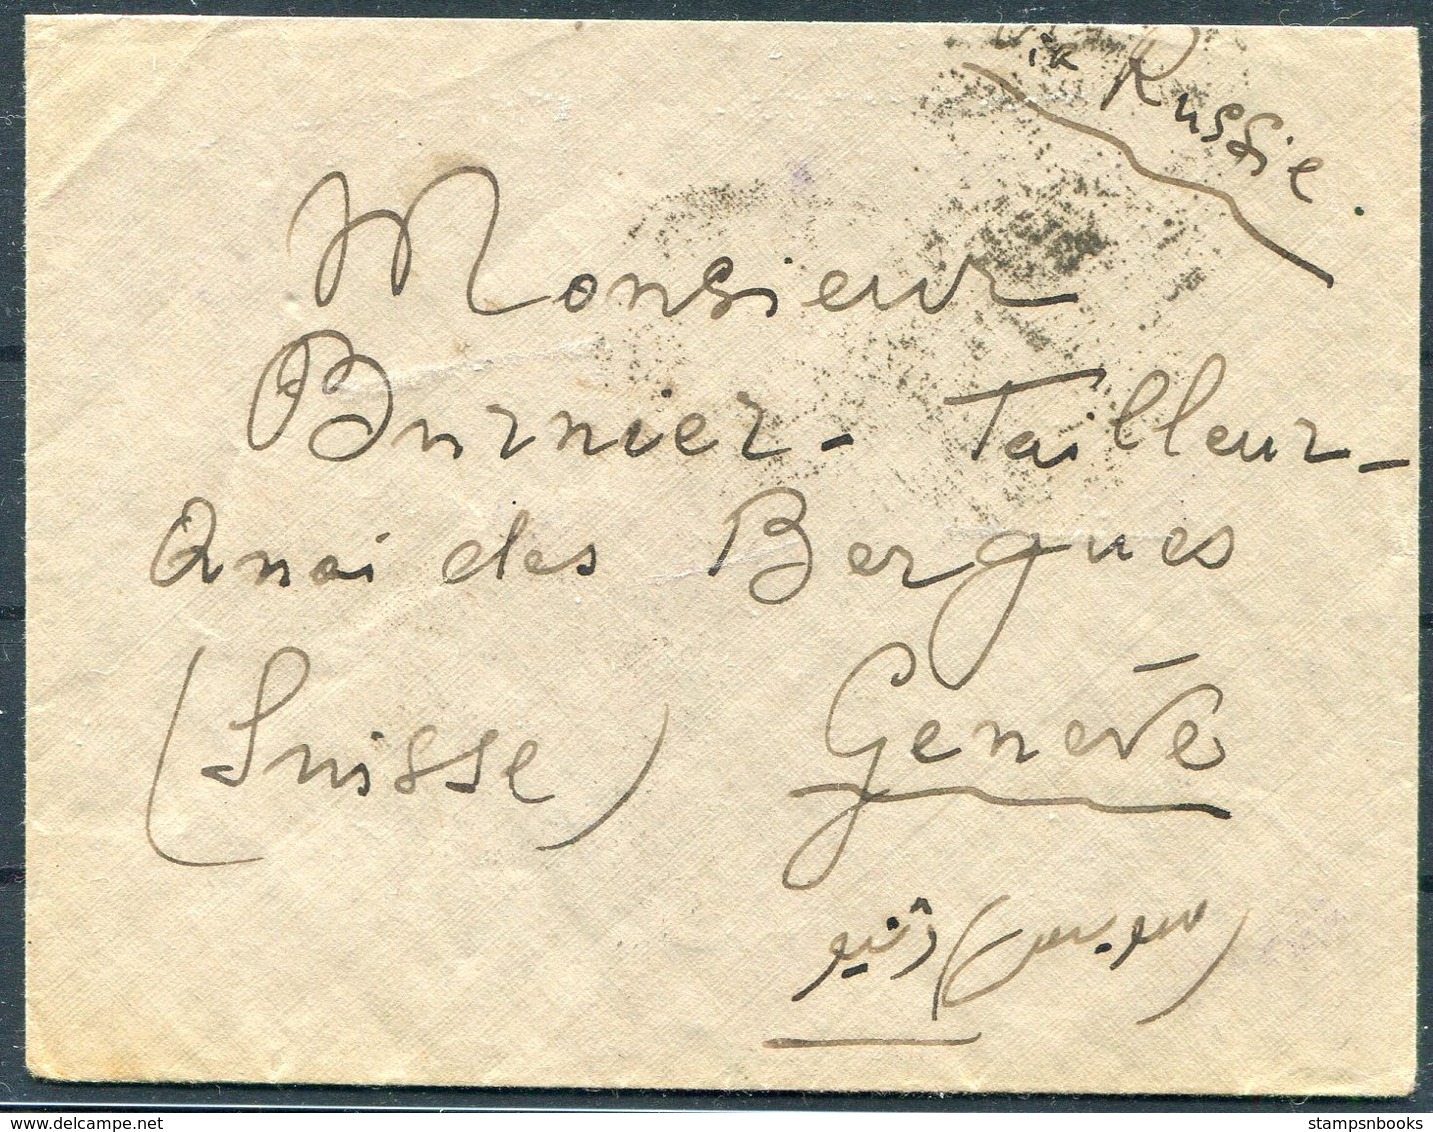 Via Russie.
Monsieur
Burnier - Tailleur -
Quai des Bergues
(Suisse) Genève
(سویس) ژنیو
stampsnbooks